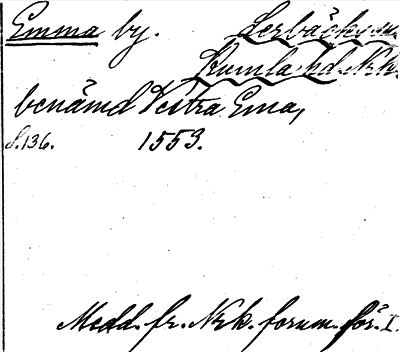 Emma by. Lerbäcks sn.
Kumla hd. Nke.
benämd Vestra Ema,
S.136. 1553.
Medd. fr. Nrk. fornm. för. I.